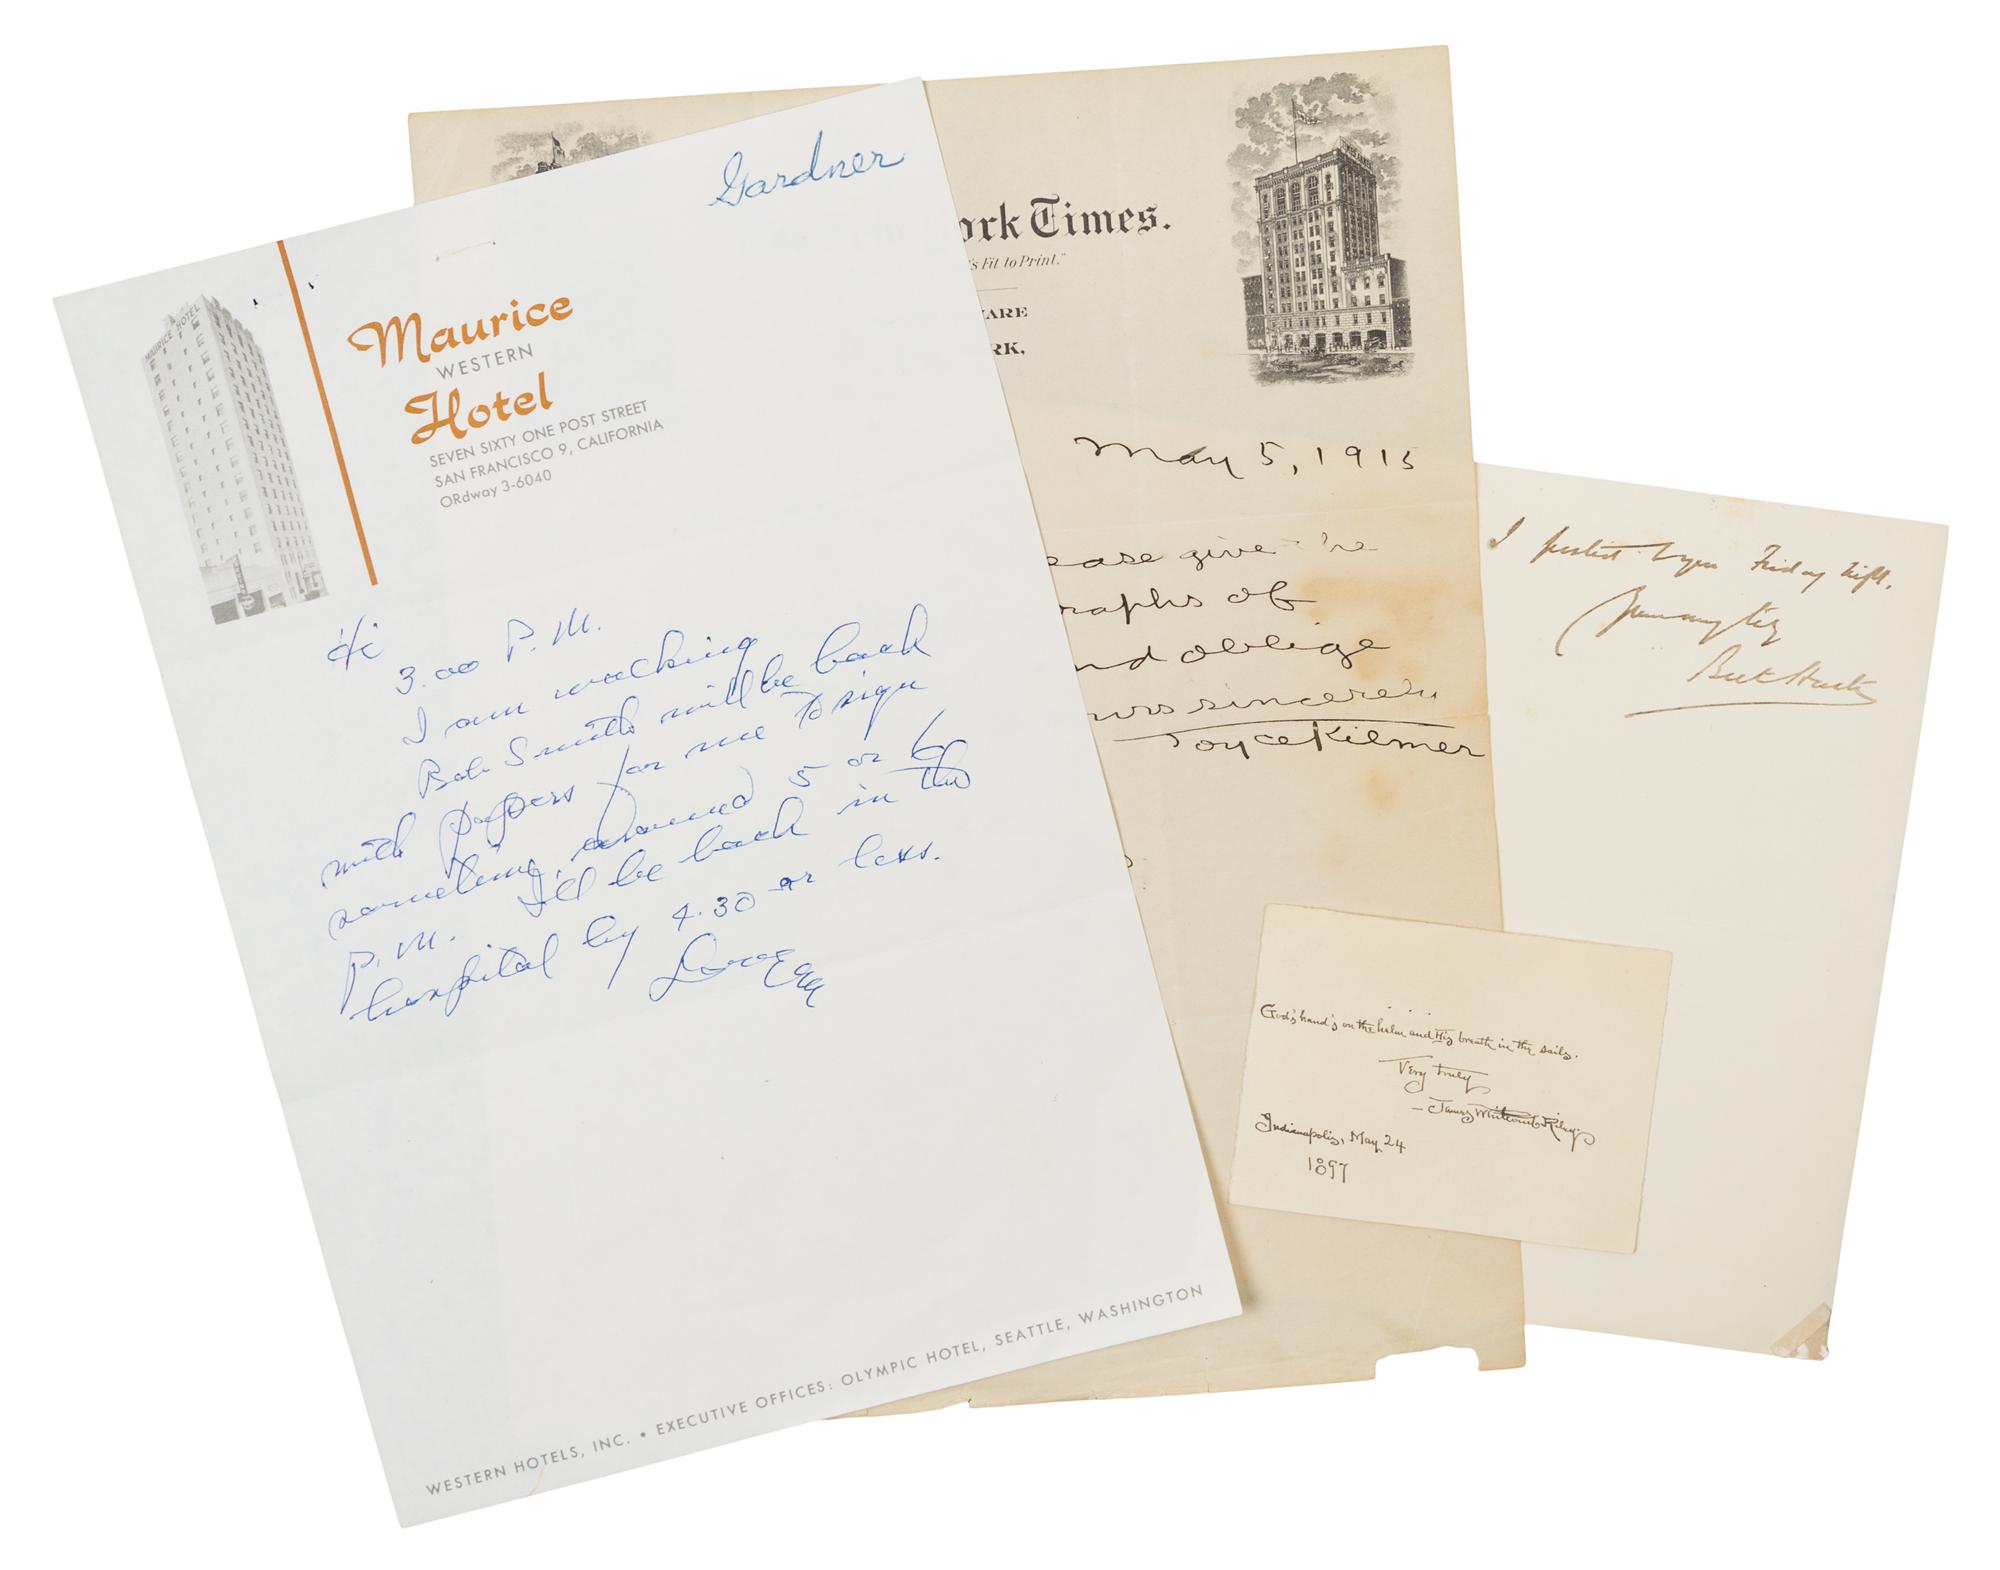 Gardner
MAURICE HOTEL
Maurice
WESTERN
Hotel
SEVEN SIXTY ONE POST STREET
SAN FRANCISCO 9, CALIFORNIA
ORdway 3-6040
Hi
3.00 P.M.
I am walking
Bob Smith will be back
with papers for me to sign
sometime, around 5 or 6
P.M. I'll be back in the
hospital by 4.30 or less.
Love
WESTERN HOTELS, INC. • EXECUTIVE OFFICES: OLYMPIC HOTEL, SEATTLE, WASHINGTON
ork Times.
's Fit to Print."
ARE
RK,
May 5, 1915
ease give he
raphs of
nd oblige
urs sincerely
Joyce Kilmer
I Friday
Bret Harte
God's hand's on the helm and His breath in the sails.
Very truly
— James Whitcomb Riley
Indianapolis, May 24
1897